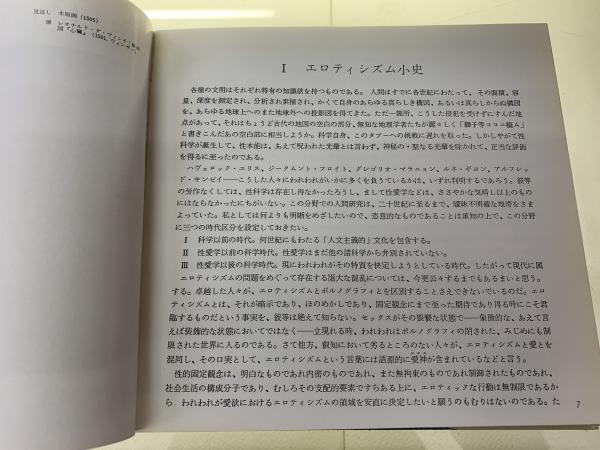 見返し 木版画(1505)
扉 レオナルド・ダ・ヴィンチ
図『心臓』(1501, ウィンザー
I エロティシズム小史
各種の文明はそれぞれ特有の知識欲を持つものである。人間はすでに各世紀にわたって、その面積、容
量、深度を測定され、分析され素描され、かくて自身のあらゆる真らしき構図、あるいは真しからぬ構図
を、あらゆる地球上へのまた地球外への投影図を得てきた。ただ一箇所、こうした侵犯を受けずにすんだ地
点があって、それはちょうど古代の地図の空白の部分、無知な地理学者たちが麗々しく「獅子等ココニ棲ム」
と書きこんだあの空白部に相当しようか。科学自身、このタブーへの挑戦に遅れを取った。しかしやがて性
科学が誕生して、性本能は、あえて呪われた光暈とは言わず、神秘の・聖なる光暈を除かれて、正当な評価
を得るに至ったのである。
ハヴェロック・エリス、ジークムント・フロイト、グレゴリオ・マラニョン、ルネ・ギヨン、アルフレッ
ド・キンゼイ――こうした人々にわれわれがいかに多くを負うているかは、いずれ判明するであろう。彼等
の労作なくしては、性科学は存在し得なかったろうし、まして性愛学などは、ささやかな気晴し以上のもの
にはならなかったにちがいない。この分野での人間研究は、二十世紀に至るまで、曖昧不明確な地帯をさま
よっていた。私としては何よりも明晰をめざしたいので、恣意的なものであることは重知の上で、この分野
に三つの時代区分を設定しておきたい。
I 科学以前の時代。何世紀にもわたる「人文主義的」文化を包含する。
II 性愛学以前の科学時代。性愛学はまだ他の諸科学から弁別されていない。
III 性愛学以後の科学時代。現にわれわれがその特質を快定しようとしている時代。したがって現代に属
するエロティシズムの問題をめぐって存在する厖大な混乱については、今更云々するまでもあるまいと思う。
する。卓越した人々が、エロティシズムとポルノグラフィとを区別することさえできないでいるのだ。エロ
ティシズムとは、それが暗示であり、ほのめかしであり、固定観念にまで至った期待であり得る時にこそ君
臨するものだという事実を、彼等は絶えて知らない。セックスがその猥褻な状態を――象徴的な、あえて言
えば装飾的な状態においてではなく――立現れる時、われわれはポルノグラフィの閉された、みじめにも制
限された世界に入るのである。さて他方、叡知において劣るところのない人々が、エロティシズムと愛とを
混同し、その口実として、エロティシズムという言葉には語源的に愛神が含まれているなどと言う。
性的固定観念は、明白なものであれ内密のものであれ、また無拘束のものであれ制御されたものであれ、
社会生活の構成分子であり、むしろその支配的要素ですらある上に、エロティックな行動は無制限であるか
ら、われわれが愛欲におけるエロティシズムの領域を安直に決定したいと願うのもむりはないのである。た
7